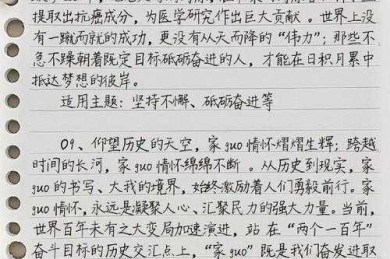 提取出抗癌成分，为医学研究作出巨大贡献。世界上没
有一蹴而就的成功，更没有从天而降的“伟力”；那些不
急不躁朝着既定目标砥砺奋进的人，才能在日积月累中
抵达梦想的彼岸。
适用主题：坚持不懈、砥砺奋进等
09、仰望历史的天空，家guo情怀熠熠生辉；跨越
时间的长河，家guo情怀绵绵不断。从历史到现实，家
guo的书写、大我的境界，始终激励着人们勇毅前行。家
guo情怀，永远是凝聚人心、汇聚民力的强大力量。当前，
世界百年未有之大变局加速演进，站在“两个一百年”
奋斗目标的历史交汇点上，“家guo”既是我们奋发进取